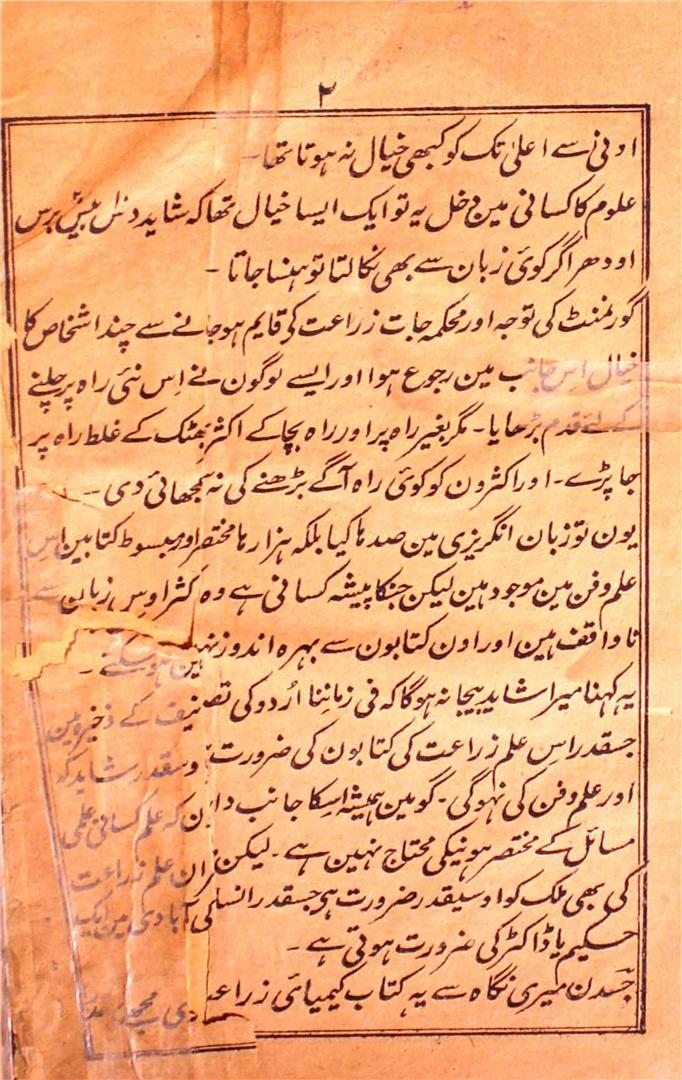 ۲
ادنیٰ سے اعلیٰ تک کو کبھی خیال نہ ہوتا تھا۔
علوم کا کسانی مین دخل یہ تو ایک ایسا خیال تھا کہ شاید دس بیس برس
اودھر اگر کوئی زبان سے بھی نکالتا تو ہنسا جاتا ۔
گورنمنٹ کی توجہ اور محکمہ جات زراعت کی قایم ہو جانے سے چند اشخاص کا
خیال اِس جانب مین رجوع ہوا اور ایسے لوگون نے اِس نئی راہ پر چلنے
کے لئے قدم بڑھایا۔ مگر بغیر راہ پر اور راہ بچا کے اکثر بھٹک کے غلط راہ پر
جا پڑے۔ اور اکثرون کو کوئی راہ آگے بڑھنے کی نہ سمجھائی دی ۔
یون تو زبان انگریزی مین صدہا کیا بلکہ ہزارہا مختصر اور مبسوط کتابین اِس
علم و فن مین موجود ہین لیکن جنکا پیشہ کسانی ہے وہ اکثر اوس زبان سے
ناواقف ہین اور اون کتابون سے بہرہ اندوز نہین ہو سکتے ۔
یہ کہنا میرا شاید بیجا نہ ہوگا کہ فی زماننا اُردو کی تصنیف کے ذخیرہ مین
جسقدر اِس علم زراعت کی کتابون کی ضرورت وسقدر شاید کہ
اور علم و فن کی نہوگی۔ گو مین ہمیشہ اِسکا جانب دا ون کہ علم کسانی علمی
مسائل کے مختصر ہونیکی محتاج نہین ہے ۔ لیکن ان علم زراعت
کی بھی ملک کو اوسیقدر ضرورت ہی جسقدر انسانی آبادی مین ایک
حکیم یا ڈاکٹر کی ضرورت ہوتی ہے ۔
جسدن میری نگاہ سے یہ کتاب کیمیائی زراعت دی مجھے